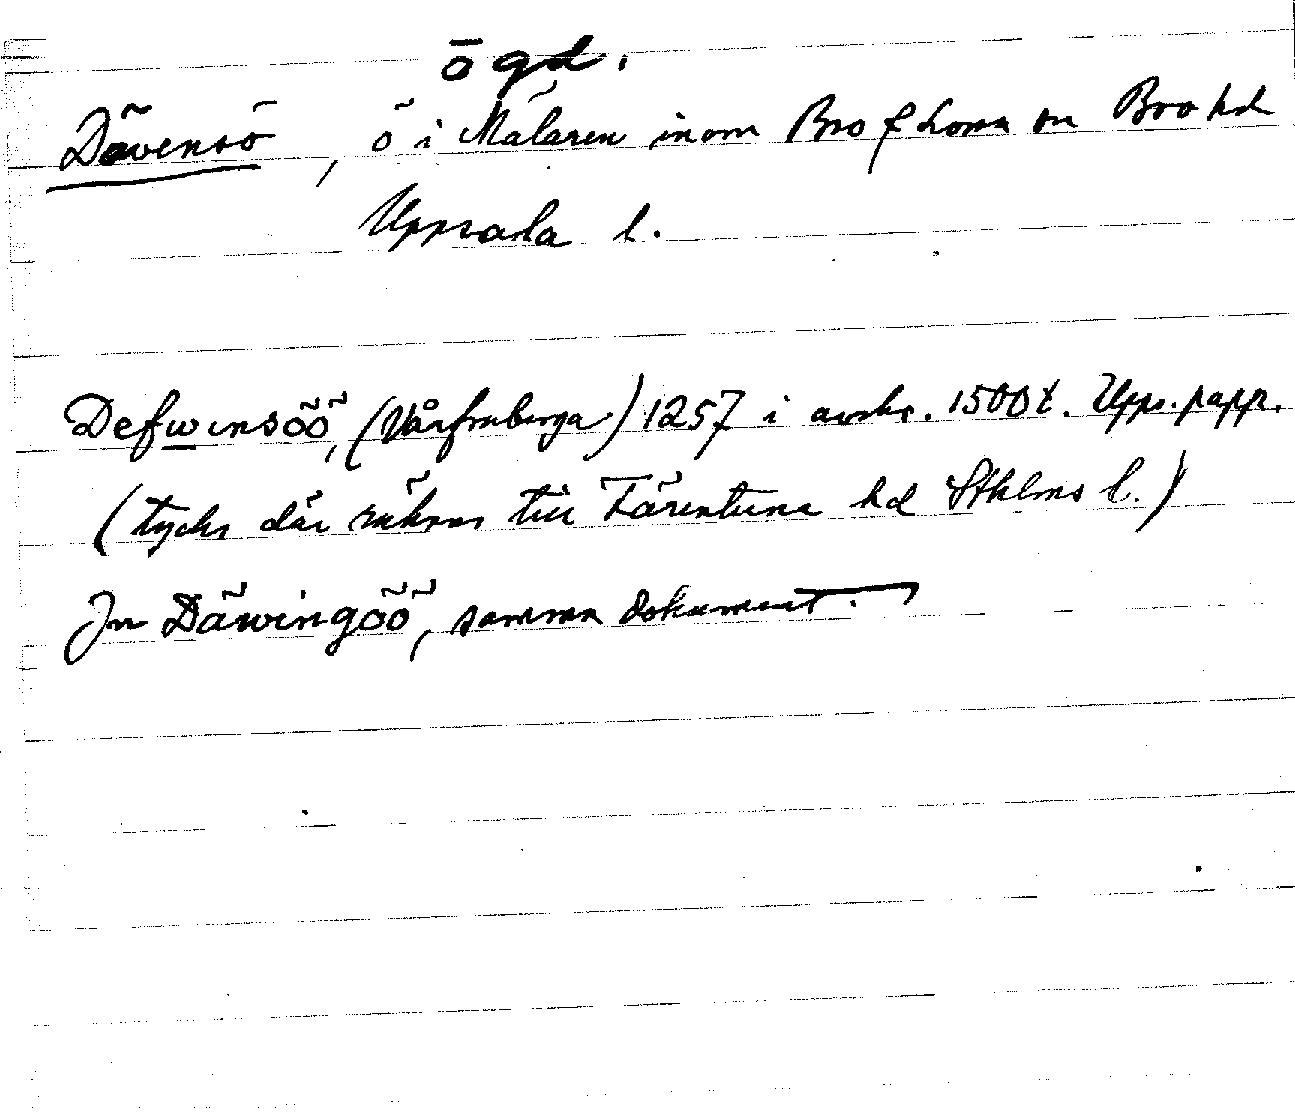 ögd.
Dävensö, ö i Mälaren inom Bro f Lossa sn Bro hd
Uppsala l.
Defwensöö, (Vårfruberga) 1257 i avskr. 1500t. Upps. papp.
(tycks där räknas till Färentuna hd Sthlms l.)
Jn Däwingöö, samma dokument.